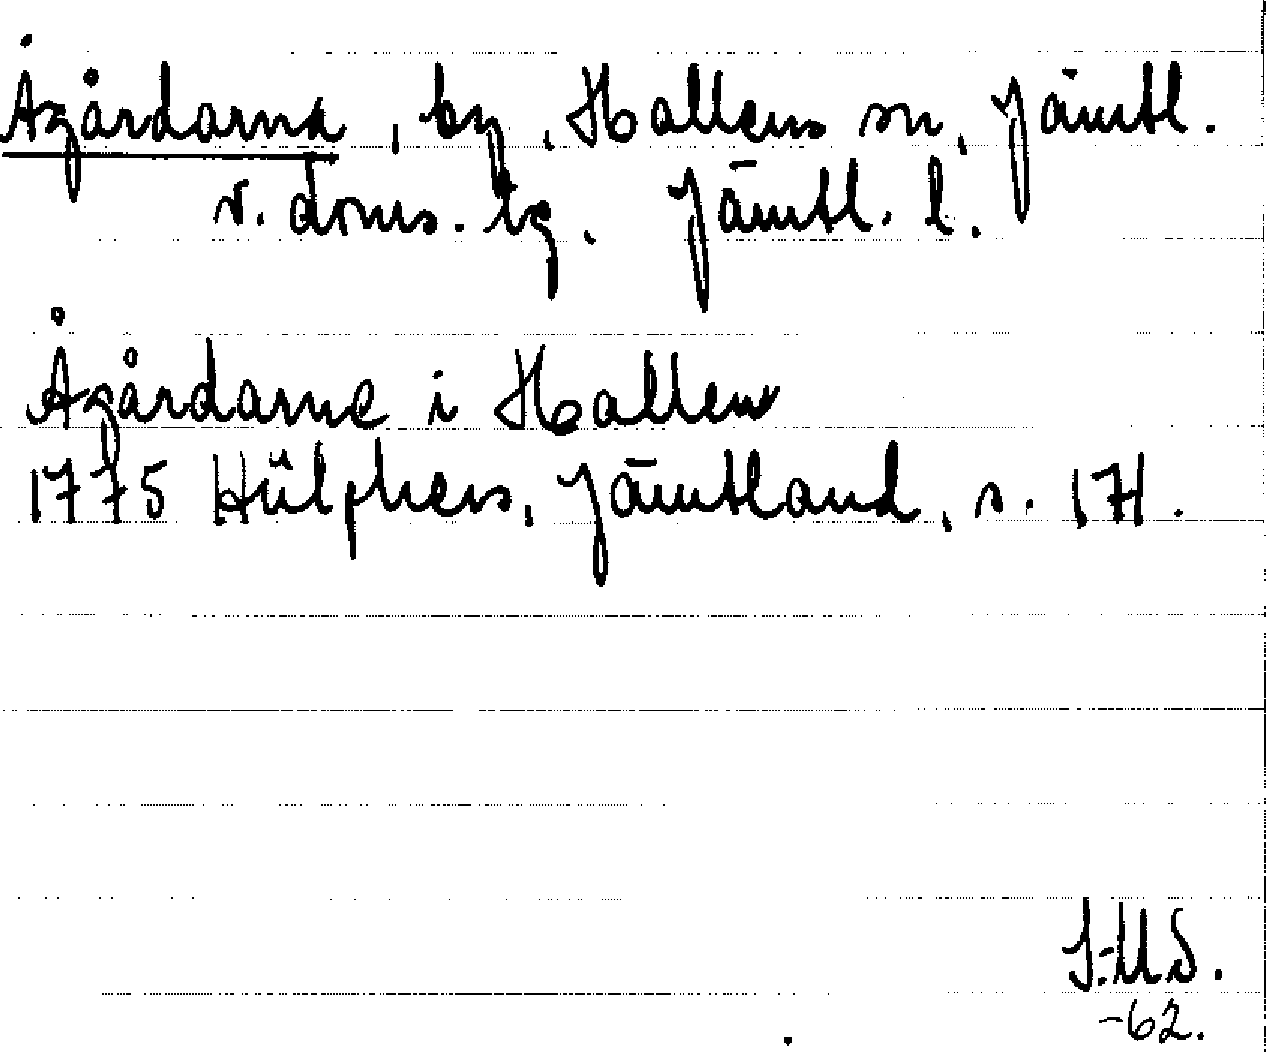 Ågårdarna, by, Hallens sn, Jämtl.
v. doms. tg. Jämtl. l.
Ågårdarne i Hallen
1775 Hülphers, Jämtland, s. 171.
-62.